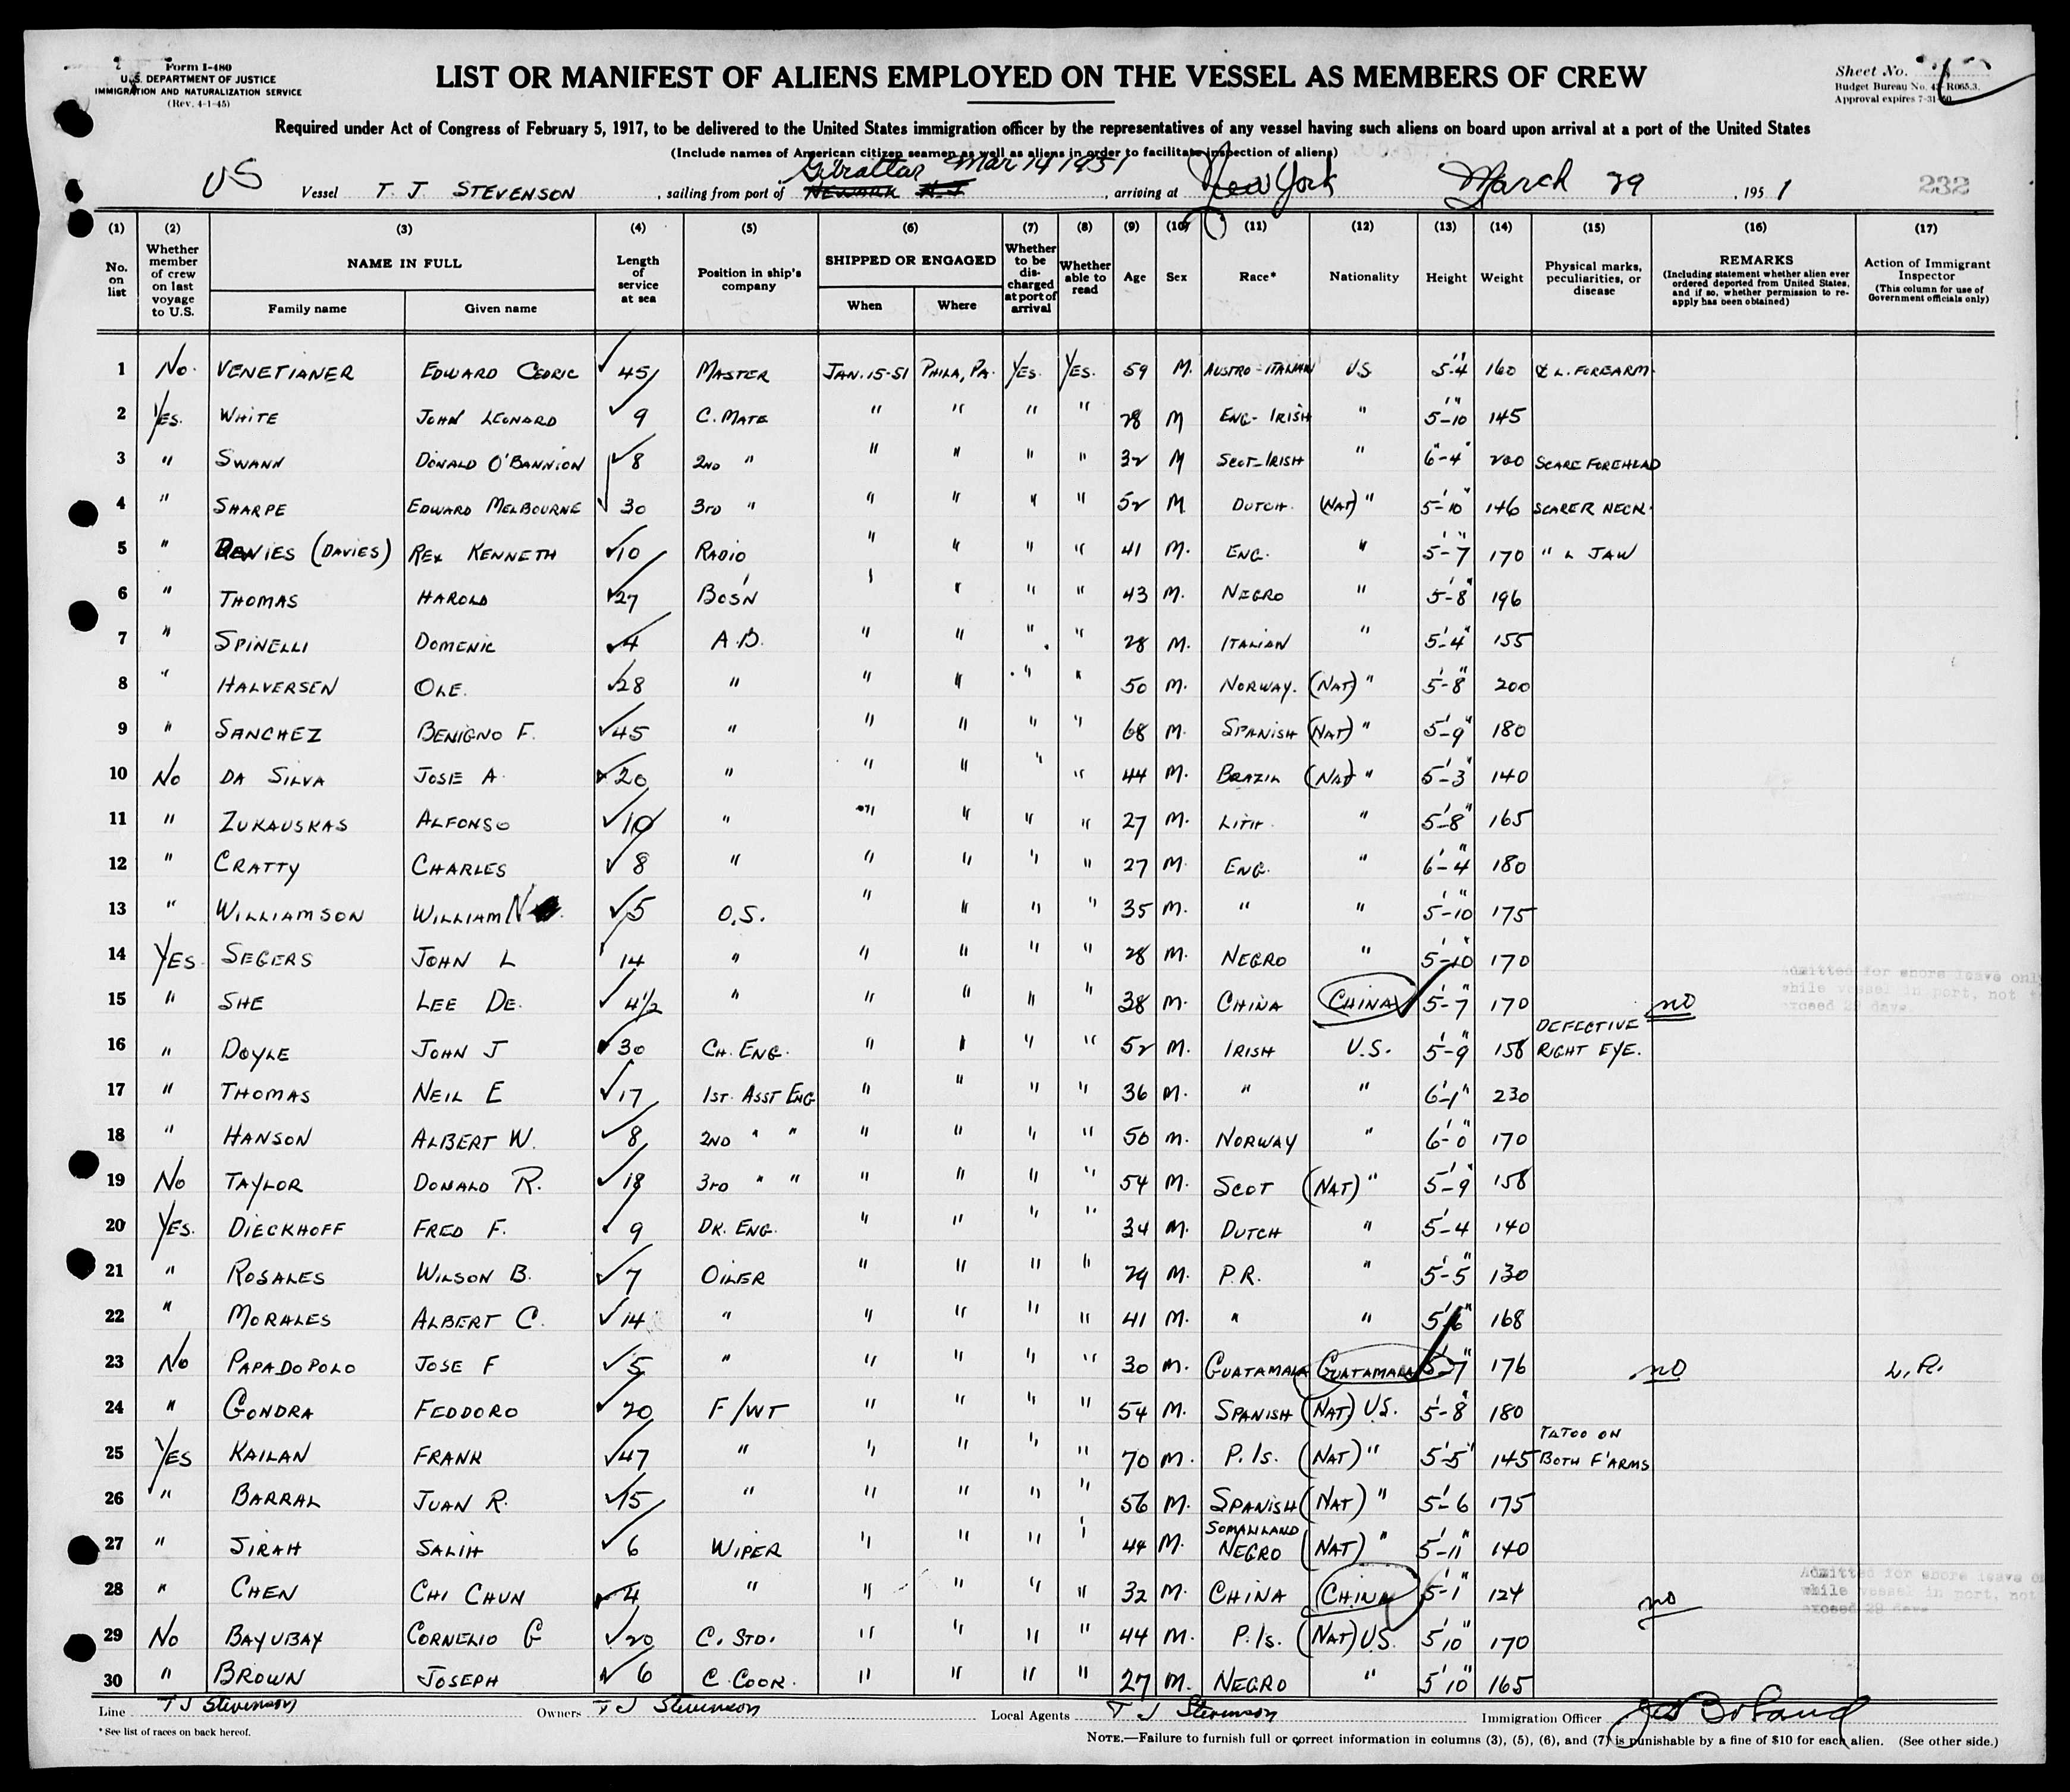 Form I-480
U.S. DEPARTMENT OF JUSTICE
IMMIGRATION AND NATURALIZATION SERVICE
(Rev. 4-1-45)
LIST OR MANIFEST OF ALIENS EMPLOYED ON THE VESSEL AS MEMBERS OF CREW
Sheet No.
Budget Bureau No. 43-R065.3.
Approval expires 7-31-50
Required under Act of Congress of February 5, 1917, to be delivered to the United States immigration officer by the representatives of any vessel having such aliens on board upon arrival at a port of the United States
(Include names of American citizen seamen as well as aliens in order to facilitate inspection of aliens)
Gibraltar Mar 14 1951
US Vessel T. J. STEVENSON, sailing from port of NEWARK N.J., arriving at New York March 29, 1951 232
(1) (2) (3) (4) (5) (6) (7) (8) (9) (10) (11) (12) (13) (14) (15) (16) (17)
No. on list
Whether member of crew on last voyage to U.S.
NAME IN FULL
Family name Given name
Length of service at sea
Position in ship's company
SHIPPED OR ENGAGED
When Where
Whether to be discharged at port of arrival
Whether able to read
Age Sex Race* Nationality Height Weight
Physical marks, peculiarities, or disease
REMARKS
(Including statement whether alien ever ordered deported from United States, and if so, whether permission to re-apply has been obtained)
Action of Immigrant Inspector
(This column for use of Government officials only)
1 No. VENETIANER EDWARD CEDRIC 45 MASTER JAN. 15-51 PHILA, PA. Yes. Yes. 59 M. AUSTRO-ITALIAN US 5'-4" 160 L. FOREARM.
2 Yes. WHITE JOHN LEONARD 9 C. MATE " " " " 28 M ENG-IRISH " 5'-10" 145
3 " SWANN DONALD O'BANNION 8 2ND " " " " " 32 M SCOT-IRISH " 6'-4" 200 SCARE FOREHEAD
4 " SHARPE EDWARD MELBOURNE 30 3RD " " " " " 52 M DUTCH. (NAT) " 5'-10" 146 SCARER NECK.
5 " (DAVIES) REX KENNETH 10 RADIO " " " " 41 M. ENG. " 5'-7" 170 " L JAW
6 " THOMAS HAROLD 27 BOS'N " " " " 43 M. NEGRO " 5'-8" 196
7 " SPINELLI DOMENIC 4 A.B. " " " " 28 M. ITALIAN " 5'-4" 155
8 " HALVERSEN OLE. 28 " " " " " 50 M. NORWAY. (NAT) " 5'-8" 200
9 " SANCHEZ BENIGNO F. 45 " " " " " 68 M. SPANISH (NAT) " 5'-9" 180
10 No DA SILVA JOSE A. 20 " " " " " 44 M. BRAZIL (NAT) " 5'-3" 140
11 " ZUKAUSKAS ALFONSO 10 " " " " " 27 M. LITH. " 5'-8" 165
12 " CRATTY CHARLES 8 " " " " " 27 M. ENG. " 6'-4" 180
13 " WILLIAMSON WILLIAM N 5 O.S. " " " " 35 M. " " 5'-10" 175
14 YES. SEGERS JOHN L 14 " " " " " 28 M. NEGRO " 5'-10" 170
15 " SHE LEE DE. 4 1/2 " " " " " 38 M. CHINA CHINA 5'-7" 170 no Admitted for shore leave only while vessel in port, not to exceed 29 days
16 " DOYLE JOHN J 30 CH. ENG. " " " " 52 M. IRISH U.S. 5'-9" 158 DEFECTIVE RIGHT EYE.
17 " THOMAS NEIL E 17 1ST. ASST ENG " " " " 36 M. " " 6'-1" 230
18 " HANSON ALBERT W. 8 2ND " " " " " " 50 M. NORWAY " 6'-0" 170
19 No TAYLOR DONALD R. 18 3RD " " " " " " 54 M. SCOT (NAT) " 5'-9" 158
20 YES. DIECKHOFF FRED F. 9 DK. ENG. " " " " 34 M. DUTCH " 5'-4 140
21 " ROSALES WILSON B. 7 OILER " " " " 29 M. P.R. " 5'-5" 130
22 " MORALES ALBERT C. 14 " " " " " 41 M. " " 5'6" 168
23 No PAPADOPOLO JOSE F 5 " " " " " 30 M. GUATAMALA GUATAMALA 5'-7" 176 no L.R.
24 " GONDRA FEODORO 20 F/WT " " " " 54 M. SPANISH (NAT) U.S. 5'-8" 180
25 YES KAILAN FRANK 47 " " " " " 70 M. P.Is. (NAT) " 5'-5" 145 TATOO ON BOTH F'ARMS
26 " BARRAL JUAN R. 15 " " " " " 56 M. SPANISH (NAT) " 5'-6 175
27 " JIRAH SALIH 6 WIPER " " " " 44 M. SOMALILAND NEGRO (NAT) " 5'-11" 140
28 " CHEN CHI CHUN 4 " " " " " 32 M. CHINA CHINA 5'-1" 124 no Admitted for shore leave only while vessel in port, not to exceed 29 days
29 No BAYUBAY CORNELIO G 20 C. STD. " " " " 44 M. P.Is. (NAT) U.S. 5'10" 170
30 " BROWN JOSEPH 6 C. COOK. " " " " 27 M. NEGRO " 5'10" 165
Line T J Stevenson Owners T J Stevenson Local Agents T J Stevenson Immigration Officer
*See list of races on back hereof.
NOTE.—Failure to furnish full or correct information in columns (3), (5), (6), and (7) is punishable by a fine of $10 for each alien. (See other side.)